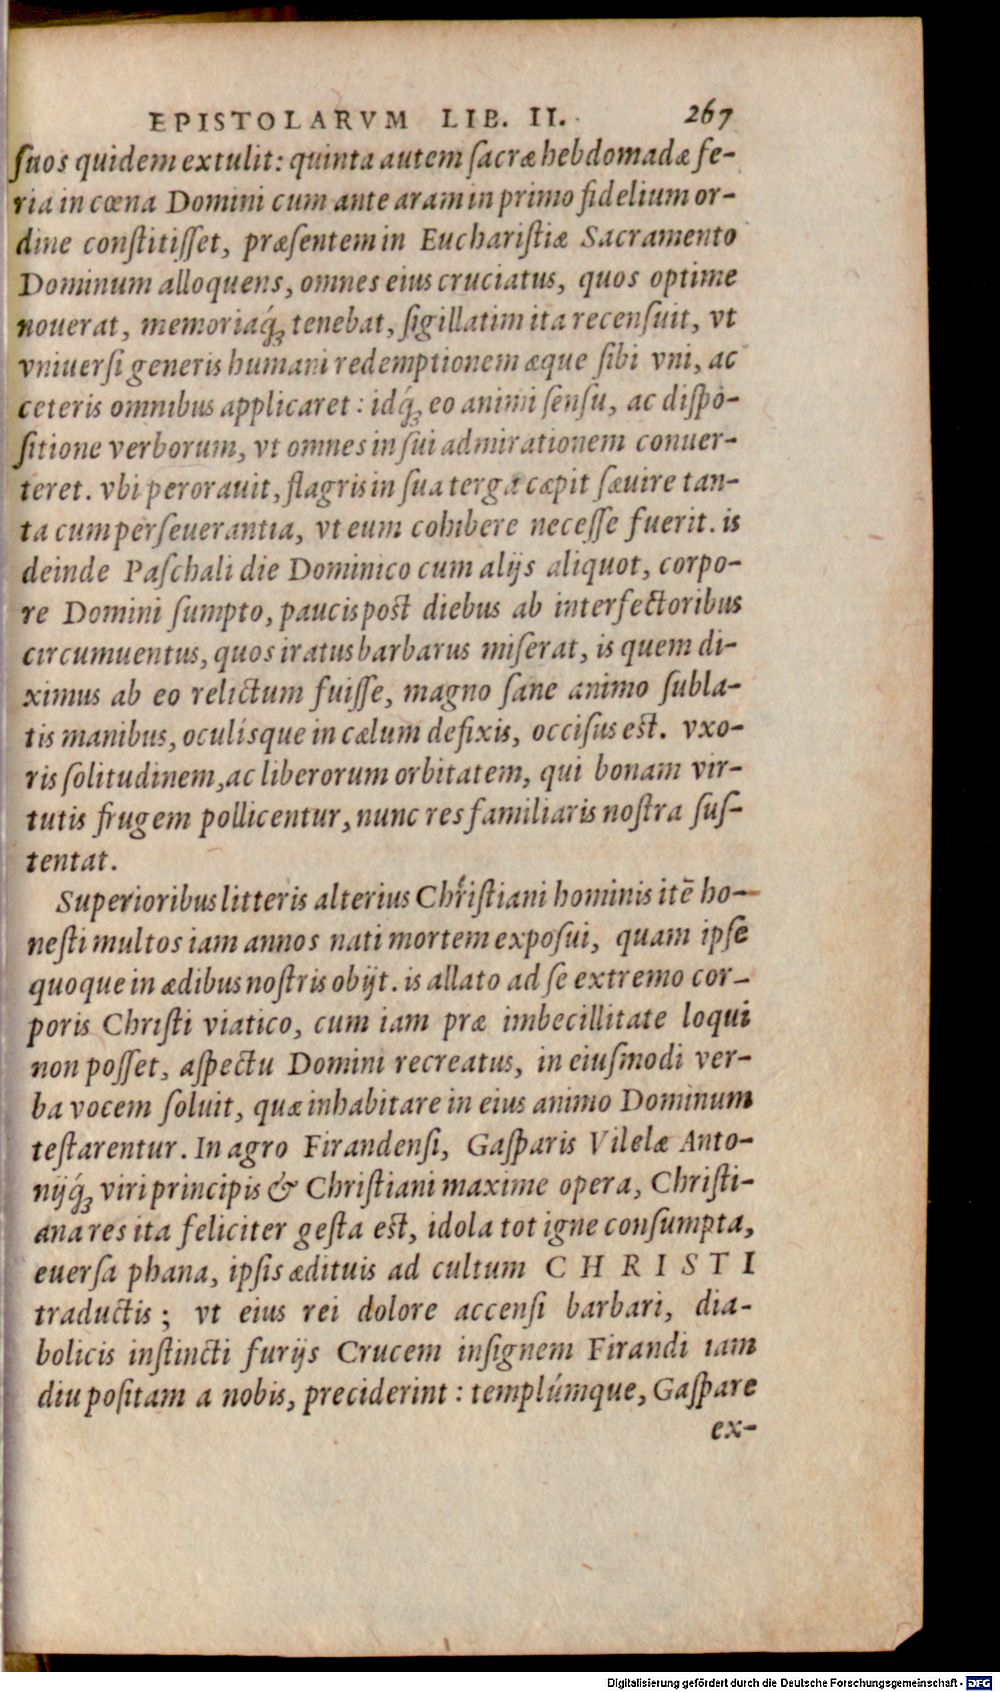 EPISTOLARVM LIB. II. 267
ſuos quidem extulit: quinta autem ſacræ hebdomadæ fe-
ria in cœna Domini cum ante aram in primo fidelium or-
dine conſtitiſſet, præſentem in Euchariſtiæ Sacramento
Dominum alloquens, omnes eius cruciatus, quos optime
nouerat, memoriaq́; tenebat, ſigillatim ita recenſuit, vt
vniuerſi generis humani redemptionem æque ſibi vni, ac
ceteris omnibus applicaret: idq́; eo animi ſenſu, ac diſpo-
ſitione verborum, vt omnes in ſui admirationem conuer-
teret. vbi perorauit, flagris in ſua terga cæpit ſæuire tan-
ta cum perſeuerantia, vt eum cohibere neceſſe fuerit. is
deinde Paſchali die Dominico cum alijs aliquot, corpo-
re Domini ſumpto, paucis poſt diebus ab interfectoribus
circumuentus, quos iratus barbarus miſerat, is quem di-
ximus ab eo relictum fuiſſe, magno ſane animo ſubla-
tis manibus, oculisque in cælum defixis, occiſus eſt. vxo-
ris ſolitudinem, ac liberorum orbitatem, qui bonam vir-
tutis frugem pollicentur, nunc res familiaris noſtra ſuſ-
tentat.
Superioribus litteris alterius Chriſtiani hominis itē ho-
neſti multos iam annos nati mortem expoſui, quam ipſe
quoque in ædibus noſtris obijt. is allato ad ſe extremo cor-
poris Chriſti viatico, cum iam præ imbecillitate loqui
non poſſet, aſpectu Domini recreatus, in eiuſmodi ver-
ba vocem ſoluit, quæ inhabitare in eius animo Dominum
teſtarentur. In agro Firandenſi, Gaſparis Vilelæ Anto-
nijq́; viri principis & Chriſtiani maxime opera, Chriſti-
ana res ita feliciter geſta eſt, idola tot igne conſumpta,
euerſa phana, ipſis ædituis ad cultum CHRISTI
traductis; vt eius rei dolore accenſi barbari, dia-
bolicis inſtincti furijs Crucem inſignem Firandi iam
diu poſitam a nobis, preciderint: templúmque, Gaſpare
ex-
Digitalisierung gefördert durch die Deutsche Forschungsgemeinschaft - DFG